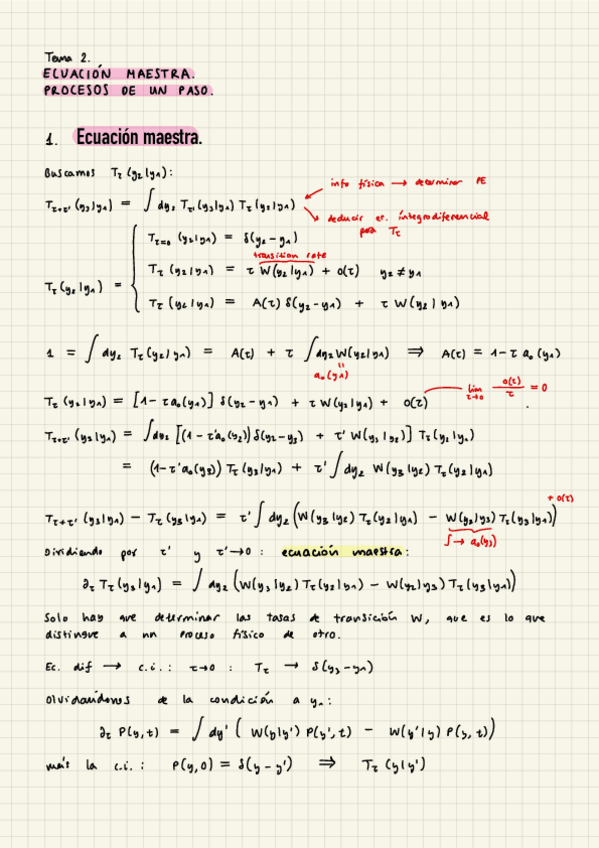 Tema 2.
ECUACIÓN MAESTRA.
PROCESOS DE UN PASO.
1. Ecuación maestra.
Buscamos Tτ(y₂|y₁):
info física → determinar PE
Tτ+τ'(y₃|y₁) = ∫dy₂ Tτ'(y₃|y₂) Tτ(y₂|y₁)
deducir ec. integrodiferencial
para Tτ
Tτ=0 (y₂|y₁) = δ(y₂-y₁)
transition rate
Tτ(y₂|y₁) = τ W(y₂|y₁) + o(τ) y₂≠y₁
Tτ(y₂|y₁) =
Tτ(y₂|y₁) = A(τ) δ(y₂-y₁) + τ W(y₂|y₁)
1 = ∫dy₂ Tτ(y₂|y₁) = A(τ) + τ ∫dy₂ W(y₂|y₁) ⇒ A(τ) = 1-τ a₀(y₁)
a₀(y₁)
Tτ(y₂|y₁) = [1-τa₀(y₁)] δ(y₂-y₁) + τW(y₂|y₁) + o(τ) lim τ→0 o(τ)/τ = 0
Tτ+τ'(y₃|y₁) = ∫dy₂ [(1-τ'a₀(y₂)) δ(y₂-y₃) + τ' W(y₃|y₂)] Tτ(y₂|y₁)
= (1-τ'a₀(y₃)) Tτ(y₃|y₁) + τ' ∫dy₂ W(y₃|y₂) Tτ(y₂|y₁)
+ o(τ)
Tτ+τ'(y₃|y₁) - Tτ(y₃|y₁) = τ' ∫dy₂ (W(y₃|y₂) Tτ(y₂|y₁) - W(y₂|y₃) Tτ(y₃|y₁))
∫→ a₀(y₃)
Dividiendo por τ' y τ'→0 : ecuación maestra:
∂τ Tτ(y₃|y₁) = ∫dy₂ (W(y₃|y₂) Tτ(y₂|y₁) - W(y₂|y₃) Tτ(y₃|y₁))
Solo hay que determinar las tasas de transición W, que es lo que
distingue a un proceso físico de otro.
Ec. dif → c.i.: τ→0 : Tτ → δ(y₃-y₁)
Olvidándonos de la condición a y₁:
∂τ P(y,t) = ∫dy' ( W(y|y') P(y',t) - W(y'|y) P(y,t))
más la c.i.: P(y,0) = δ(y-y') ⇒ Tτ(y|y')